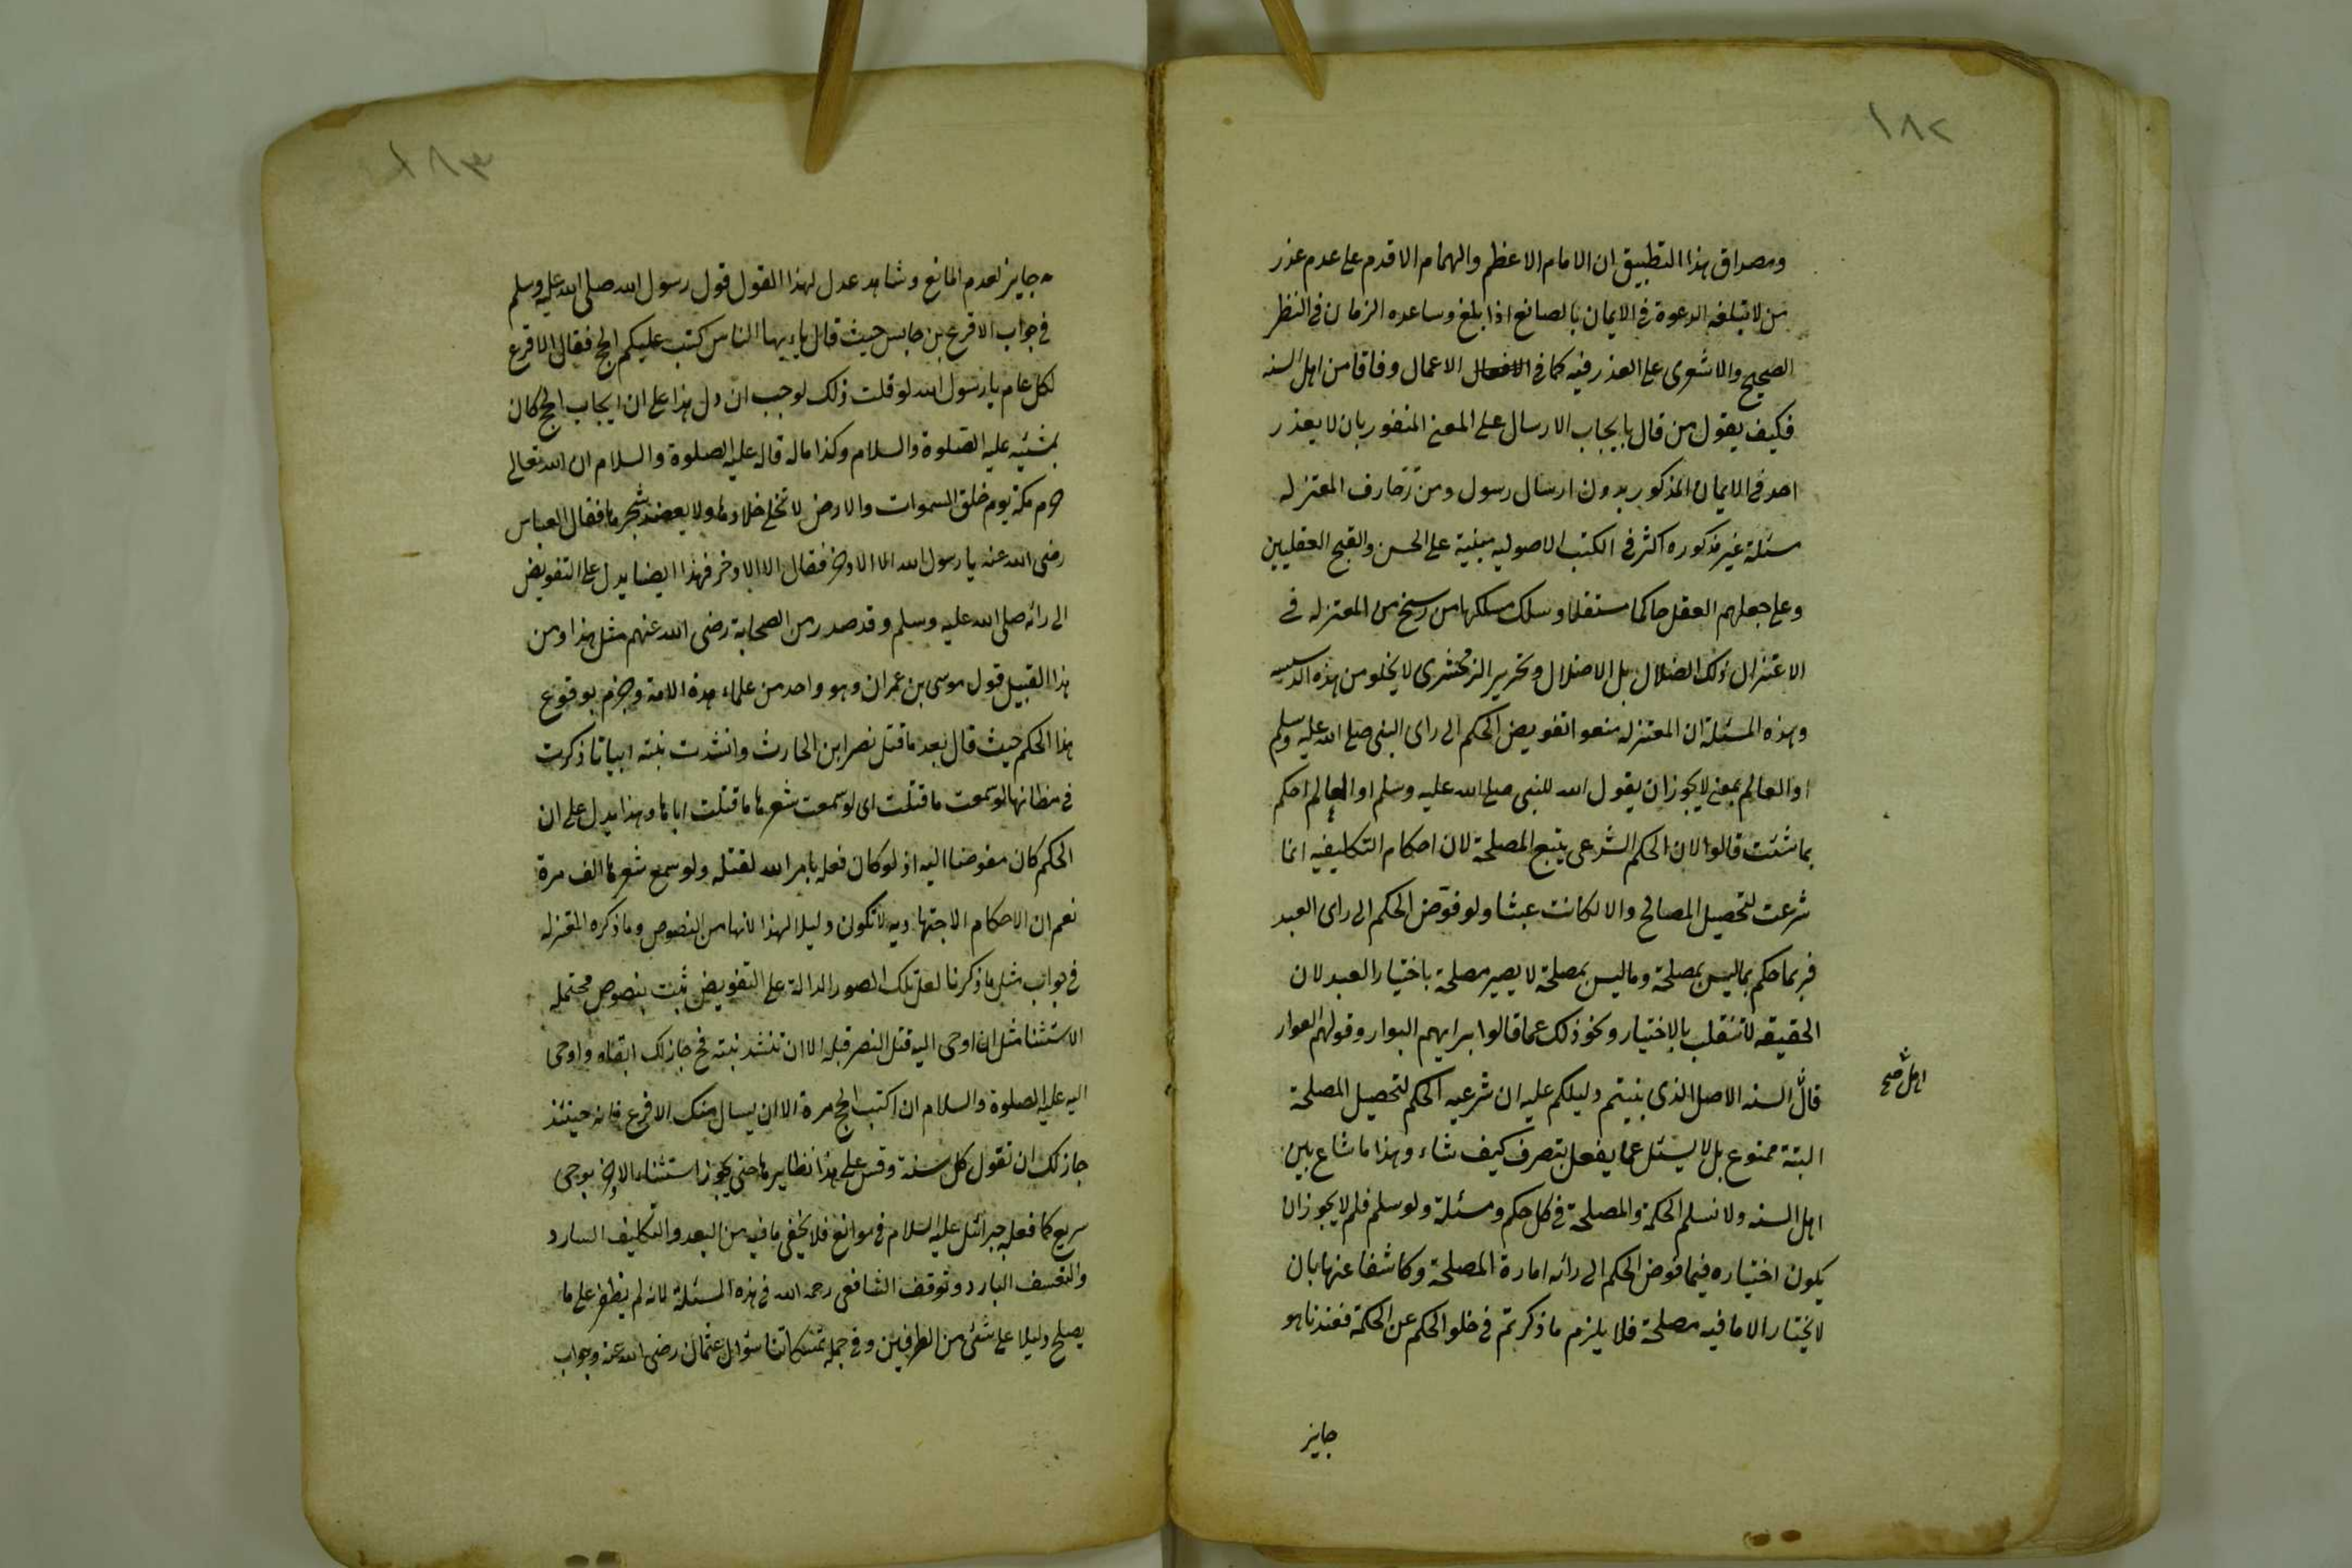 ١٨٢
ومصداق هذا التطبيق ان الامام الاعظم والهمام الاقدم على عدم عذر
من لا تبلغه الدعوة فى الايمان بالصانع اذا بلغ وساعده الزمان فى النظر
الصحيح والاشعرى على العذر فيه كما فى الاعمال وفاقا من اهل السنه
فكيف يقول من قال بايجاب الارسال على المعنى المذكور بان لا يعذر
احد فى الايمان المذكور بدون ارسال رسول ومن زخارف المعتزله
مسئلة غير مذكوره اكثر فى الكتب الاصوليه مبنية على الحسن والقبح العقليين
وعلى جعلهم العقل حاكما مستقلا وسلك مسلكها من رسخ من المعتزله فى
الاعتزال ذلك الضلال بل الاضلال وتحرير الزمخشرى لا يخلو من هذه الدسيسه
وهذه المسئلة ان المعتزله منعوا تفويض الحكم الى راى النبى صلى الله عليه وسلم
او العالم بمعنى لا يجوز ان يقول الله للنبى صلى الله عليه وسلم او العالم احكم
بما شئت قالوا لان الحكم الشرعى يتبع المصلحة لان احكام التكليفيه انما
شرعت لتحصيل المصالح والا لكانت عبثا ولو فوّض الحكم الى راى العبد
فربما حكم بما ليس بمصلحة وما ليس بمصلحة لا يصير مصلحة باختيار العبد لان
الحقيقه لا تنقلب بالاختيار ونحو ذلك عما قالوا برايهم البوار وقولهم العوار
قال السنه الاصل الذى بنيتم دليلكم عليه ان شرعيه الحكم لتحصيل المصلحة
اهل صح
البتة ممنوع بل لا يسئل عما يفعل يتصرف كيف شاء وهذا ما شاع بين
اهل السنه ولا نسلم الحكمة والمصلحة فى كل حكم ومسئلة ولو سلم فلم لا يجوز ان
يكون اختياره فيما فوض الحكم الى رائه امارة المصلحة وكاشفا عنها بان
لا يختار الا ما فيه مصلحة فلا يلزم ما ذكرتم فى خلو الحكم عن الحكمة فعندنا هو
جايز
١٨٣
جايز لعدم المانع وشاهد عدل لهذا القول قول رسول الله صلى الله عليه وسلم
فى جواب الاقرع بن حابس حيث قال يا ايها الناس كتب عليكم الحج فقال الاقرع
لكل عام يا رسول الله لو قلت ذلك لوجب ان دل هذا على ان ايجاب الحج كان
بمشيئه عليه الصلوة والسلام وكذا ما له قاله عليه الصلوة والسلام ان الله تعالى
حرم مكة يوم خلق السموات والارض لا تختلى خلاؤها ولا يعضد شجرها فقال العباس
رضى الله عنه يا رسول الله الا الاذخر فقال الا الاذخر فهذا ايضا يدل على التفويض
الى رائه صلى الله عليه وسلم وقد صدر من الصحابة رضى الله عنهم مثل هذا ومن
هذا القبيل قول موسى بن عمران وهو واحد من علماء هذه الامة وجزم بوقوع
هذا الحكم حيث قال بعد ما قتل نصر ابن الحارث وانشدت بنته ابياتا ذكرت
فى مظانها لو سمعت ما قتلت اى لو سمعت شعرها ما قتلت اباها وهذا يدل على ان
الحكم كان مفوضا اليه اذ لو كان فعله بامر الله لقتله ولو سمع شعرها الف مرة
نعم ان الاحكام الاجتهاديه لا تكون دليلا لهذا لانها من النصوص وما ذكره المعتزله
فى جواب مثل ما ذكرنا لعل تلك الصور الدالة على التفويض ثبت بنصوص محتمله
الاستثنا مثل ان اوحى اليه قتل النصر قبله الا ان تنشد بنته فح جاز لك ابقاه واوحى
اليه عليه الصلوة والسلام ان اكتب الحج مرة الا ان يسال منك الاقرع فانه حينئذ
جاز لك ان تقول كل سنة وقس على هذا نظايرها حتى يجوز استثناء الاذخر بوحى
سريع كما فعله جبرائيل عليه السلام فى مواضع فلا يخفى ما فيه من البعد والتكليف السارد
والتعسف البارد وتوقف الشافعى رحمه الله فى هذه المسئلة لانه لم يظفر على ما
يصلح دليلا على شئ من الطرفين وفى جملة تمسكاتنا سؤال عثمان رضى الله عنه وجواب